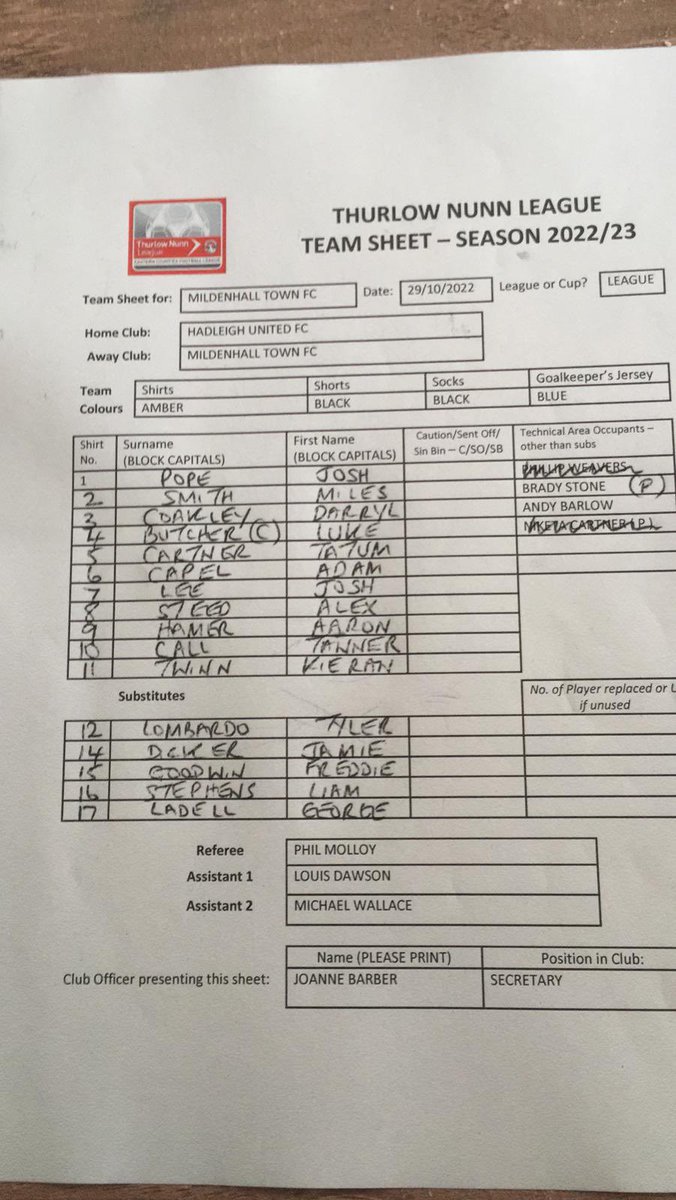 THURLOW NUNN LEAGUE
TEAM SHEET – SEASON 2022/23
Thurlow Nunn
League
EASTERN COUNTIES FOOTBALL LEAGUE
Team Sheet for: MILDENHALL TOWN FC Date: 29/10/2022 League or Cup? LEAGUE
Home Club: HADLEIGH UNITED FC
Away Club: MILDENHALL TOWN FC
Team Colours Shirts Shorts Socks Goalkeeper's Jersey
AMBER BLACK BLACK BLUE
Shirt No. Surname (BLOCK CAPITALS) First Name (BLOCK CAPITALS) Caution/Sent Off/ Sin Bin – C/SO/SB Technical Area Occupants – other than subs
1 POPE JOSH PHILLIP WEAVERS
2 SMITH MILES BRADY STONE (P)
3 COAKLEY DARRYL ANDY BARLOW
4 BUTCHER (C) LUKE NIKETA CARTNER (P)
5 CARTNER TATUM
6 CAPEL ADAM
7 LEE JOSH
8 STEED ALEX
9 HAMER AARON
10 CALL TANNER
11 TWINN KIERAN
Substitutes No. of Player replaced or U if unused
12 LOMBARDO TYLER
14 DCKER JAMIE
15 GOODWIN FREDDIE
16 STEPHENS LIAM
17 LADELL GEORGE
Referee PHIL MOLLOY
Assistant 1 LOUIS DAWSON
Assistant 2 MICHAEL WALLACE
Name (PLEASE PRINT) Position in Club:
Club Officer presenting this sheet: JOANNE BARBER SECRETARY